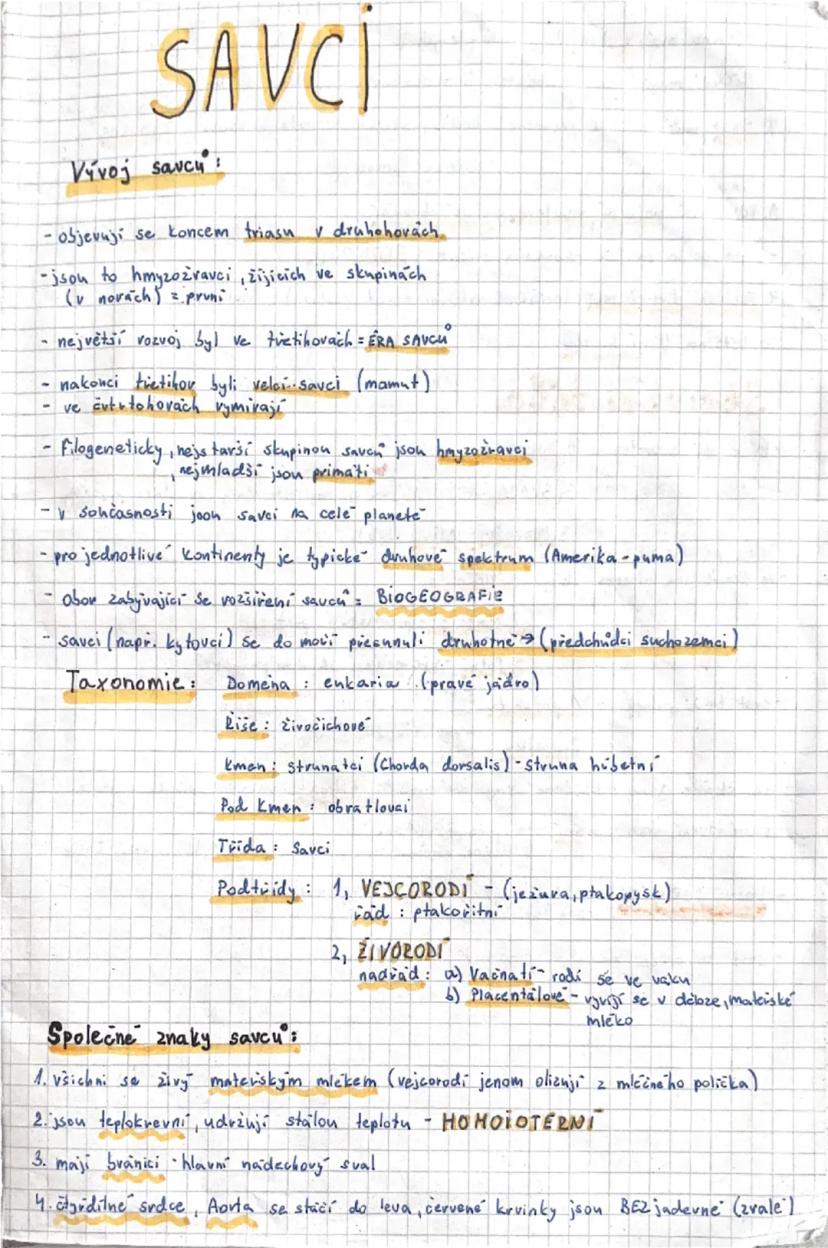 SAVCI
Vývoj savců:
- objevují se koncem triasu v druhohorách
- jsou to hmyzožravci, žijících ve skupinách
(v norách) = první
- největší rozvoj byl ve třetihorách = ÉRA SAVCŮ
- nakonci třetihor byli velcí savci (mamut)
- ve čtvrtohorách vymírají
- Filogeneticky, nejstarší skupinou savců jsou hmyzožravci
, nejmladší jsou primáti
- v současnosti jsou savci na celé planetě
- pro jednotlivé kontinenty je typické druhové spektrum (Amerika - puma)
- obor zabývající se rozšíření savců = BIOGEOGRAFIE
- savci (např. kytovci) se do moří přesunuli druhotně → (předchůdci suchozemci)
Taxonomie: Doména: eukaria (pravé jádro)
Říše: živočichové
Kmen: strunatci (Chorda dorsalis) - struna hřbetní
Pod Kmen: obratlovci
Třída: Savci
Podtřídy: 1, VEJCORODÍ - (ježura, ptakopysk)
řád: ptakořitní
2, ŽIVORODÍ
nadřád: a) Vačnatí - rodí se ve vaku
b) Placentálové - vyvíjí se v děloze, mateřské
mléko
Společné znaky savců:
1. všichni se živý mateřským mlékem (vejcorodí jenom olizují z mléčného políčka)
2. jsou teplokrevní, udržují stálou teplotu - HOMOIOTERNÍ
3. mají bránici - hlavní nádechový sval
4. čtyřdílné srdce, Aorta se stáčí do leva, červené krvinky jsou BEZjaderné (zralé)